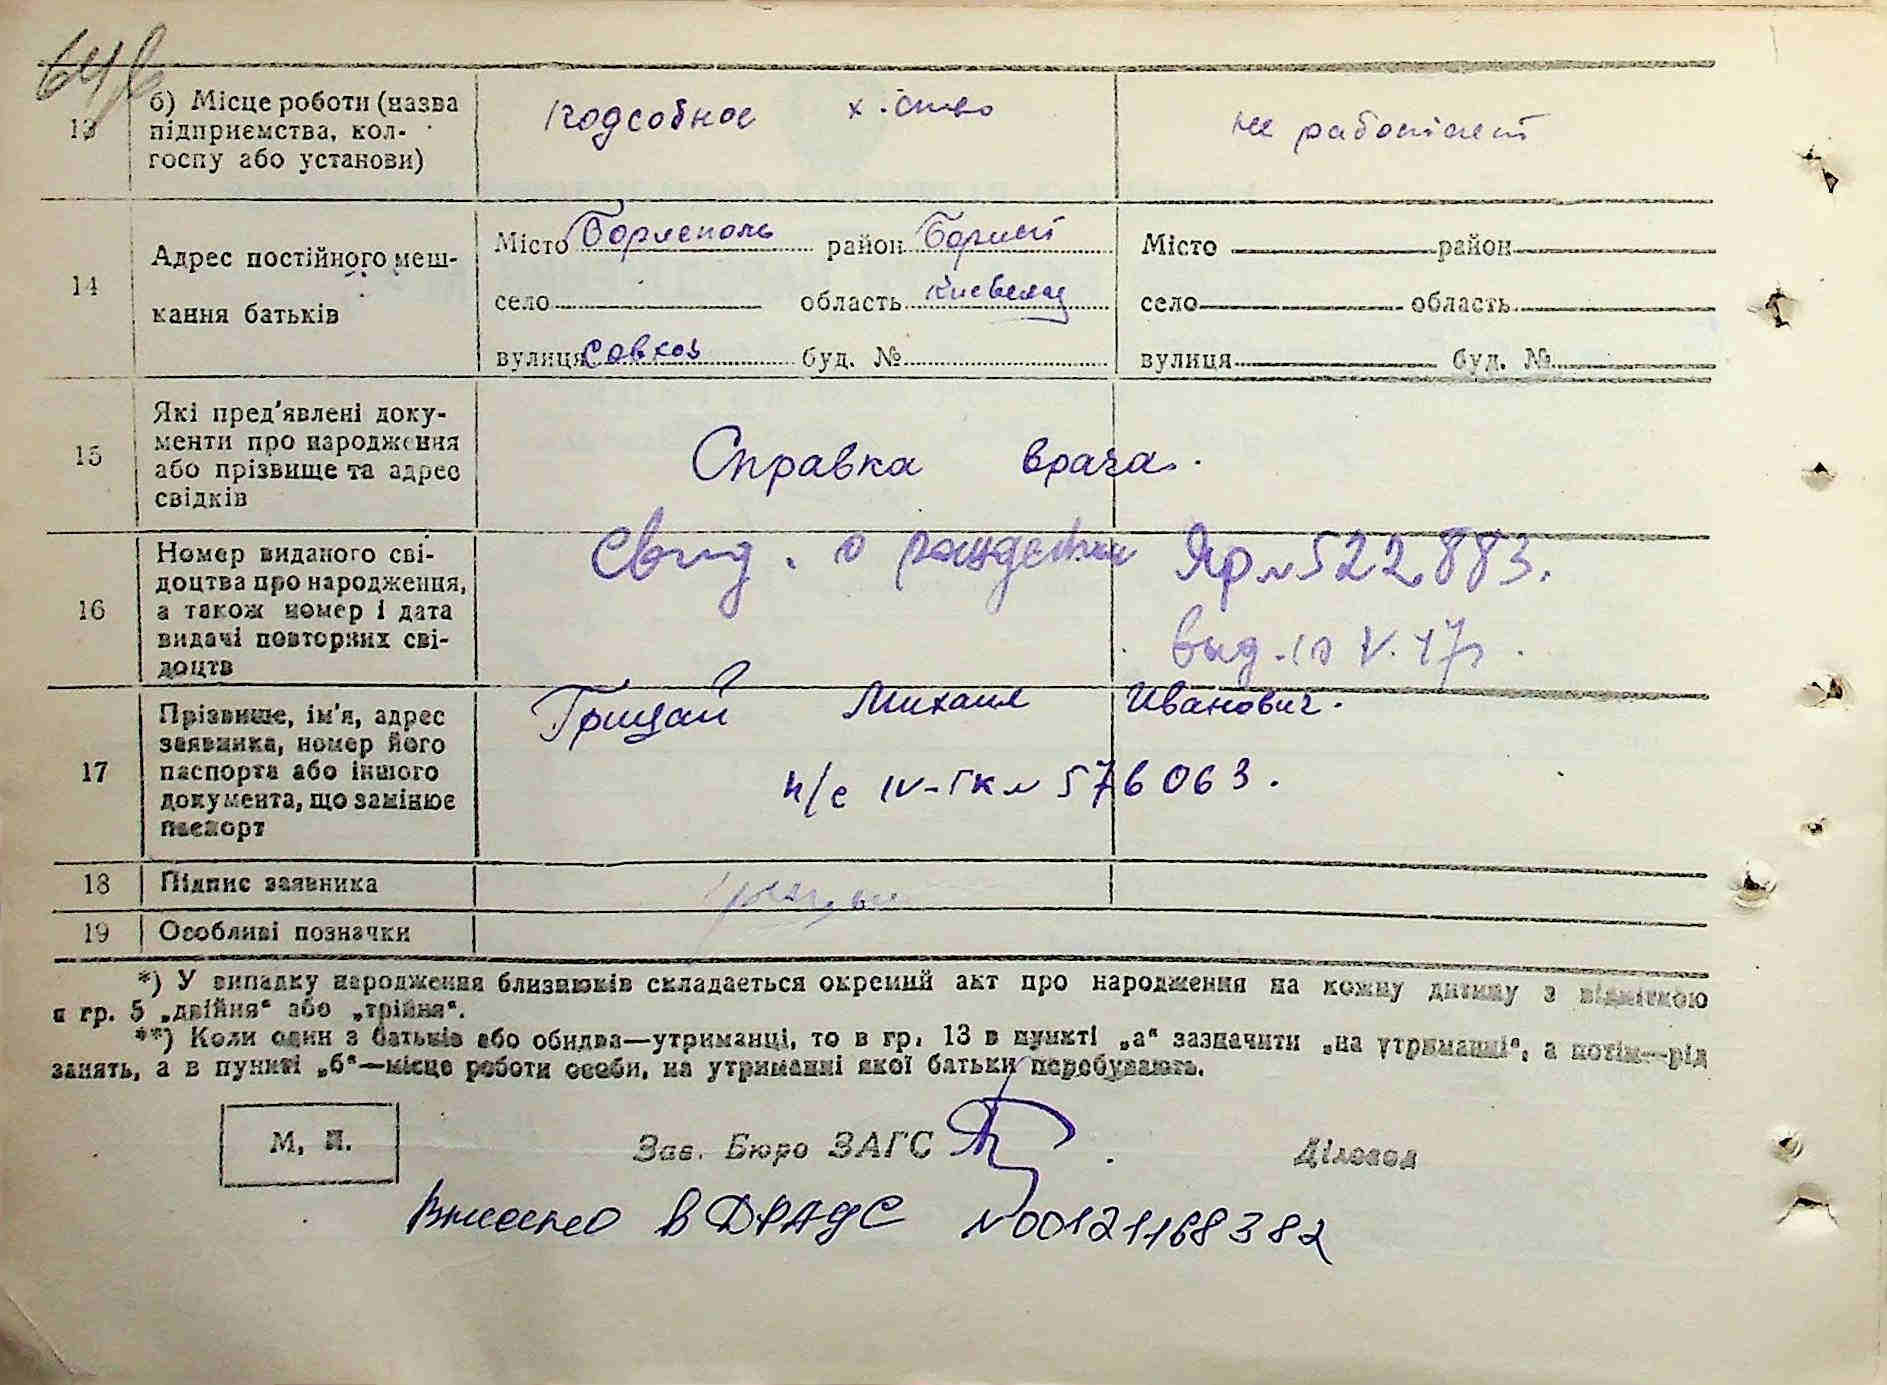 13
б) Місце роботи (назва
підприємства, кол-
госпу або установи)
подсобное х.ство
не работает
14
Адрес постійного меш-
кання батьків
Місто Борисполь район Борисп
село область Киевская
вулиця Совхоз буд. №
Місто район
село область
вулиця буд. №
15
Які пред'явлені доку-
менти про народження
або прізвище та адрес
свідків
Справка врача.
16
Номер виданого сві-
доцтва про народження,
а також номер і дата
видачі повторних сві-
доцтв
Свид. о рождении Яр № 522883.
выд. 10 V. 47г.
17
Прізвище, ім'я, адрес
заявника, номер його
паспорта або іншого
документа, що замінює
паспорт
Грицай Михаил Иванович.
п/с IV-ГК № 576063.
18
Підпис заявника
19
Особливі позначки
*) У випадку народження близнюків складається окремий акт про народження на кожну дитину з відміткою
в гр. 5 „двійня“ або „трійня“.
**) Коли один з батьків або обидва—утриманці, то в гр. 13 в пункті „а“ зазначити „на утриманні“, а потім—рід
занять, а в пункті „б“—місце роботи особи, на утриманні якої батьки перебувають.
М. П.
Зав. Бюро ЗАГС
Діловод
Внесено в ДРАЦС №00121168382